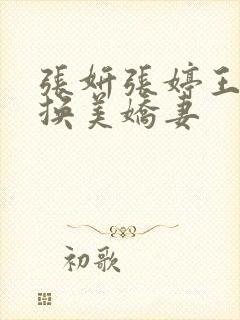 張妍張婷王
換美嬌妻
初歌